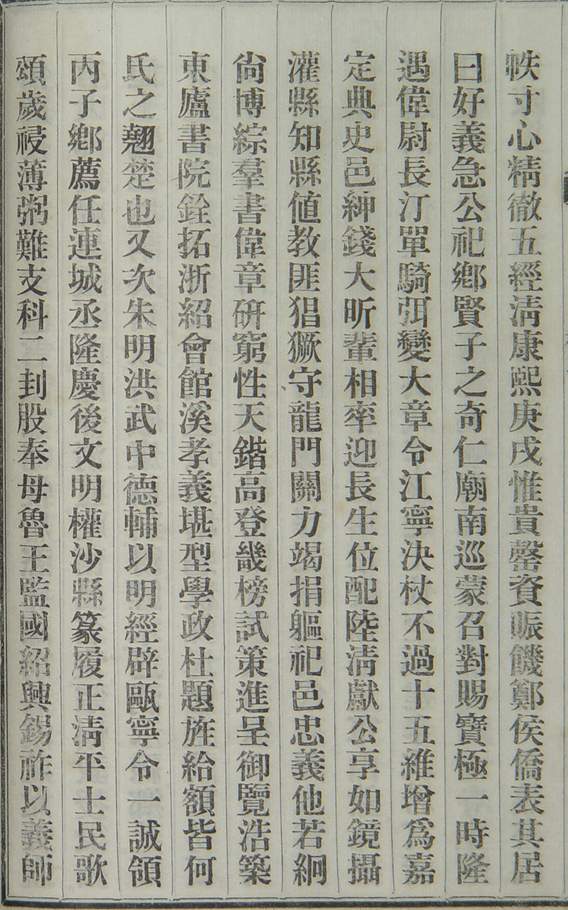 帙寸心精徹五經清康熙庚戌惟貴罄資賑饑鄭侯僑表其居
曰好義急公祀鄉賢子之奇仁廟南巡蒙召對賜寶極一時隆
遇偉尉長汀單騎弭變大章令江寧決杖不過十五維增爲嘉
定典史邑紳錢大昕輩相率迎長生位配陸清獻公享如鏡攝
灌縣知縣値教匪猖獗守龍門關力竭捐軀祀邑忠義他若絅
尙博綜羣書偉章硏窮性天鍇高登畿榜試策進呈御覽浩築
東廬書院銓拓浙紹會館溪孝義堪型學政杜題旌給額皆何
氏之翹楚也又次朱明洪武中德輔以明經辟甌寧令一誠領
丙子鄉薦任連城丞隆慶後文明權沙縣篆履正清平士民歌
頌歲祲薄粥難支科二刲股奉母魯王監國紹興錫祚以義師